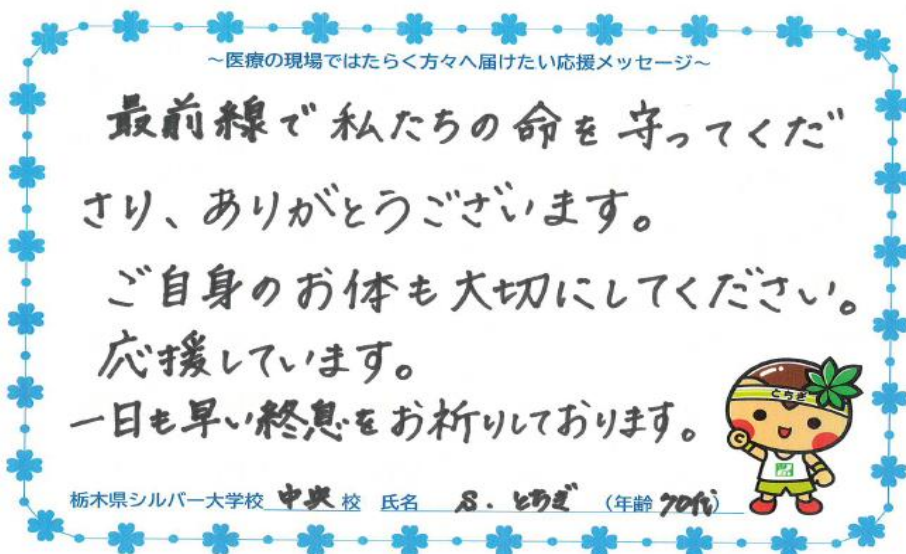 ～医療の現場ではたらく方々へ届けたい応援メッセージ～
最前線で私たちの命を守ってくだ
さり、ありがとうございます。
ご自身のお体も大切にしてください。
応援しています。
一日も早い終息をお祈りしております。
とちぎ
栃木県シルバー大学校 中央 校 氏名 S. とちぎ (年齢 70代)